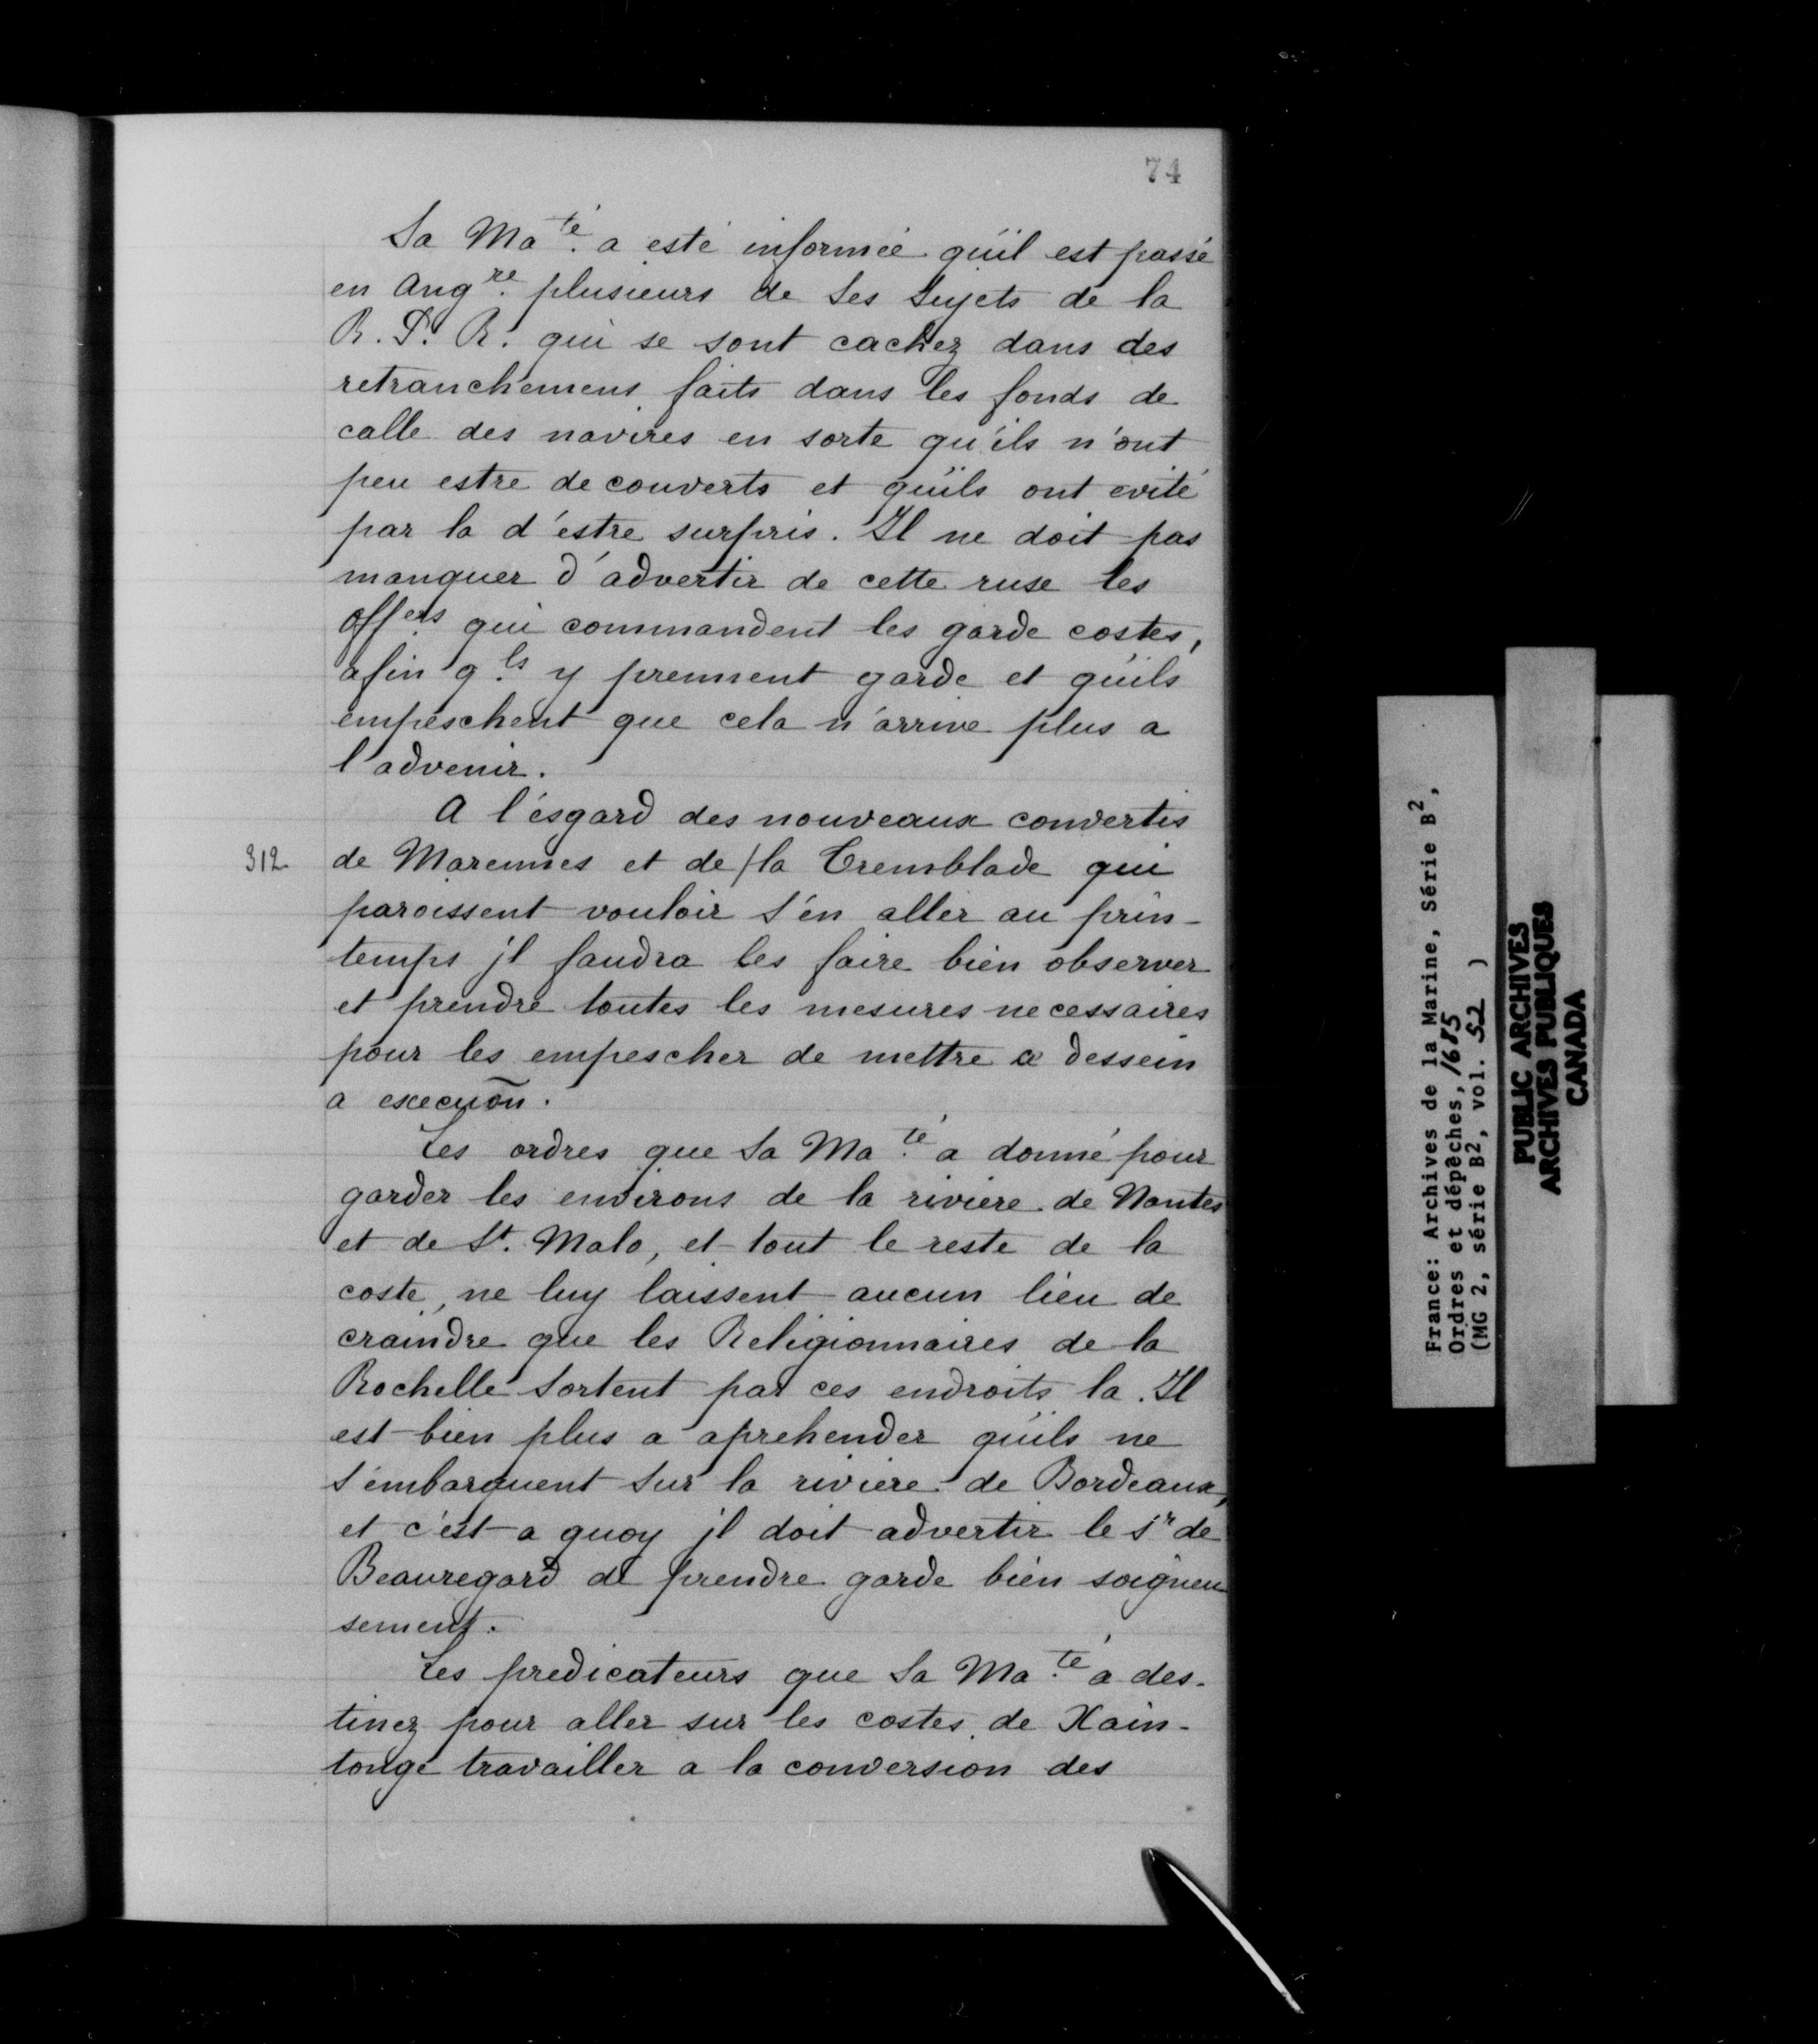 74
Sa Ma.té a esté informée qu'il est passé
en Ang.re plusieurs de ses sujets de la
R. P. R. qui se sont cachez dans des
retranchemens faits dans les fonds de
calle des navires en sorte qu'ils n'ont
peu estre decouverts et qu'ils ont evité
par la d'estre surpris. Il ne doit pas
manquer d'advertir de cette ruse les
off.ers qui commandent les garde costes,
afin q.ls y prennent garde et qu'ils
empeschent que cela n'arrive plus a
l'advenir.
A l'esgard des nouveaux convertis
312 de Marennes et de / la Tremblade qui
paroissent vouloir s'en aller au prin-
temps jl faudra les faire bien observer
et prendre toutes les mesures necessaires
pour les empescher de mettre ce dessein
a execuõn.
Les ordres que Sa Ma.té a donné pour
garder les environs de la riviere de Nantes
et de St. Malo, et tout le reste de la
coste, ne luy laissent aucun lieu de
craindre que les Religionnaires de la
Rochelle sortent par ces endroits la. Il
est bien plus a aprehender qu'ils ne
s'embarquent sur la riviere de Bordeaux,
et c'est a quoy jl doit advertir le Sr de
Beauregard de prendre garde bien soigneu
sement.
Les predicateurs que Sa Ma.té a des-
tinez pour aller sur les costes de Xain-
tonge travailler a la conversion des
France: Archives de la Marine, Série B2,
Ordres et dépêches, 1685
(MG 2, série B2, vol. 52 )
PUBLIC ARCHIVES
ARCHIVES PUBLIQUES
CANADA